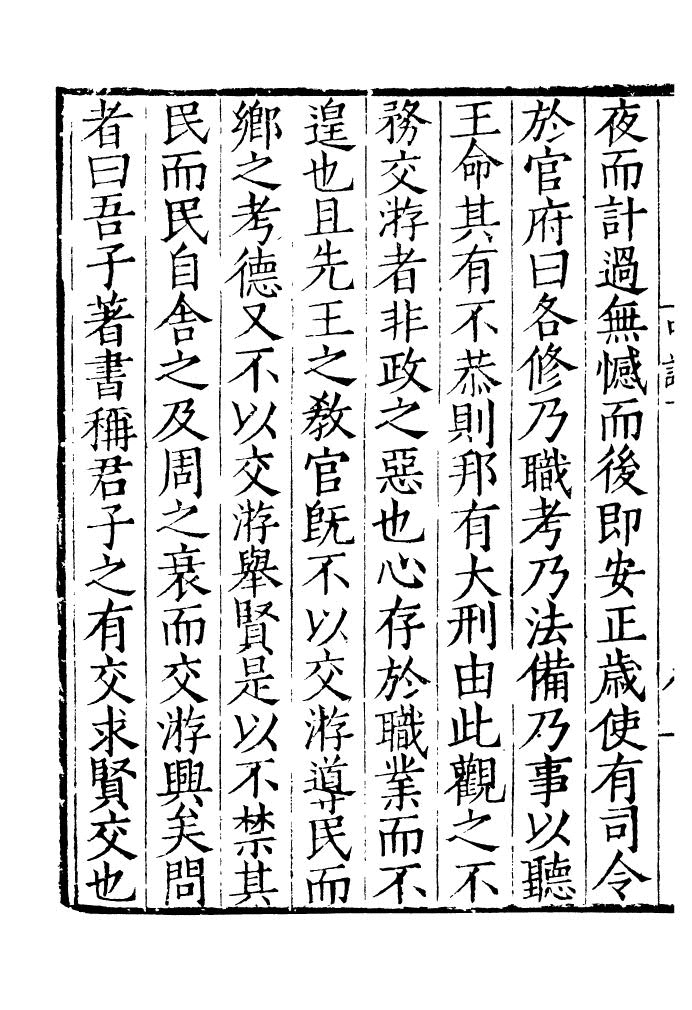 夜而計過無憾而後即安正歳使有司令
於官府曰各修乃職考乃法備乃事以聽
王命其有不恭則邦有大刑由此觀之不
務交游者非政之惡也心存於職業而不
遑也且先王之敎官旣不以交游導民而
鄉之考德又不以交游舉賢是以不禁其
民而民自舍之及周之衰而交游興矣問
者曰吾子著書稱君子之有交求賢交也